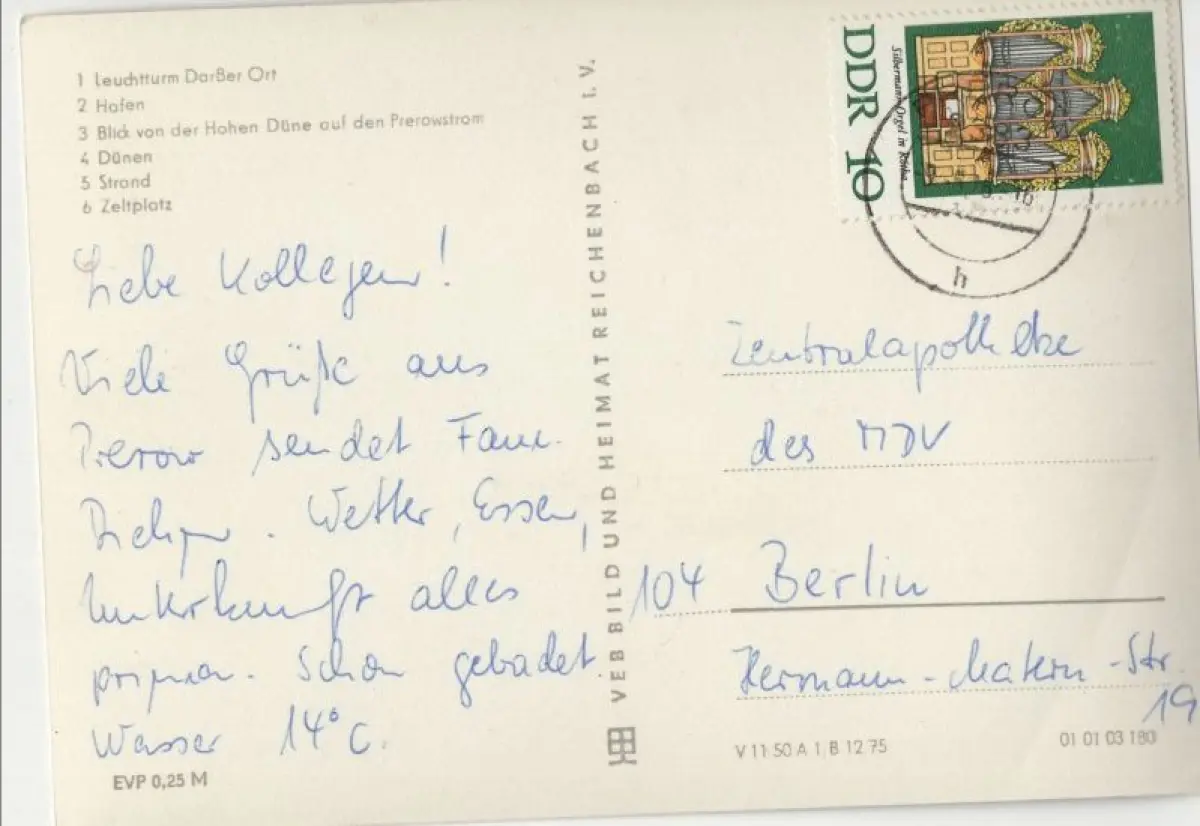 1 Leuchtturm Darßer Ort
2 Hafen
3 Blick von der Hohen Düne auf den Prerowstrom
4 Dünen
5 Strand
6 Zeltplatz
Liebe Kollegen!
Viele Grüße aus
Prerow sendet Fam.
Wetter, Essen,
Unterkunft alles
prima. Schon gebadet
Wasser 14°C.
EVP 0,25 M
VEB BILD UND HEIMAT REICHENBACH I. V.
DDR 10
Silbermann-Orgel in Rötha
h
Zentralapotheke
des MDV
104 Berlin
Hermann-Matern-Str.
19
V 11 50 A 1, B 12 75
01 01 03 180